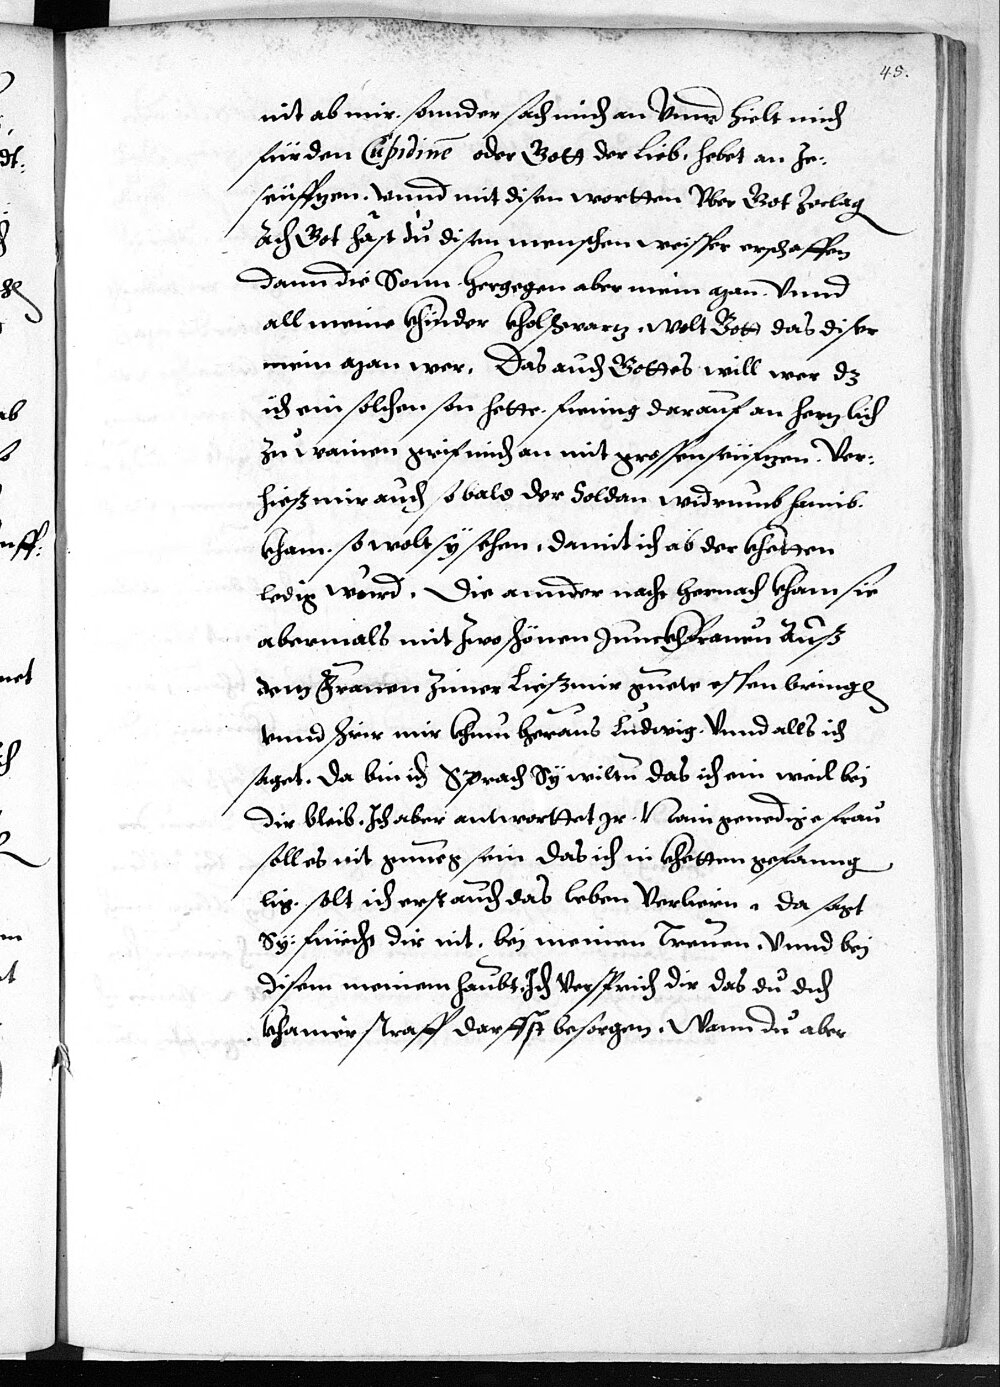 45.
nit ab mir. sonnder sach mich an Vnnd hielt mich
für den Cupidinē oder Gott der Lieb. hebet an Ze-
seüfftzen. Vnnd mit disen wortten Vber Got Zeclag
Ach Got hast du disen menschen weisser erschaffen
dann die Sonn. hergegen aber mein man. Vnnd
all meine khinder kholschwartz. wolt Gott das diser
mein man wer. Das auch Gottes will wer dz
ich ein solchen son hette. fieng darauf an hertzlich
Zu wainen grif mich an mit grossen seüfftzen. Ver-
hiesz mir auch so bald der Soldan widrumb haimb.
kham. so wolt sy sehen, damit ich ab der khetten
ledig würd. Die annder nacht hernach kham sie
abermals mit zwo schönen Junckhfrauen Ausz
dem Frauen Zimer Liesz mir guete essen bringen
vnnd mir khum heraus Ludwig. Vnnd alls ich
saget. Da bin ich Sprach Sy wiltu das ich ein weil bei
dir bleib. Ich aber antworttet Jr. Nain genedige frau
soll es nit gnueg sein das ich in khetten gefanng
lig. solt ich erst auch das leben Verliern. da sagt
Sy: fürcht dir nit. bei meinen Treuen. Vnnd bei
disem meinem haubt. Ich Versprich dir das du dich
khainer straff darffst besorgen. Wann du aber